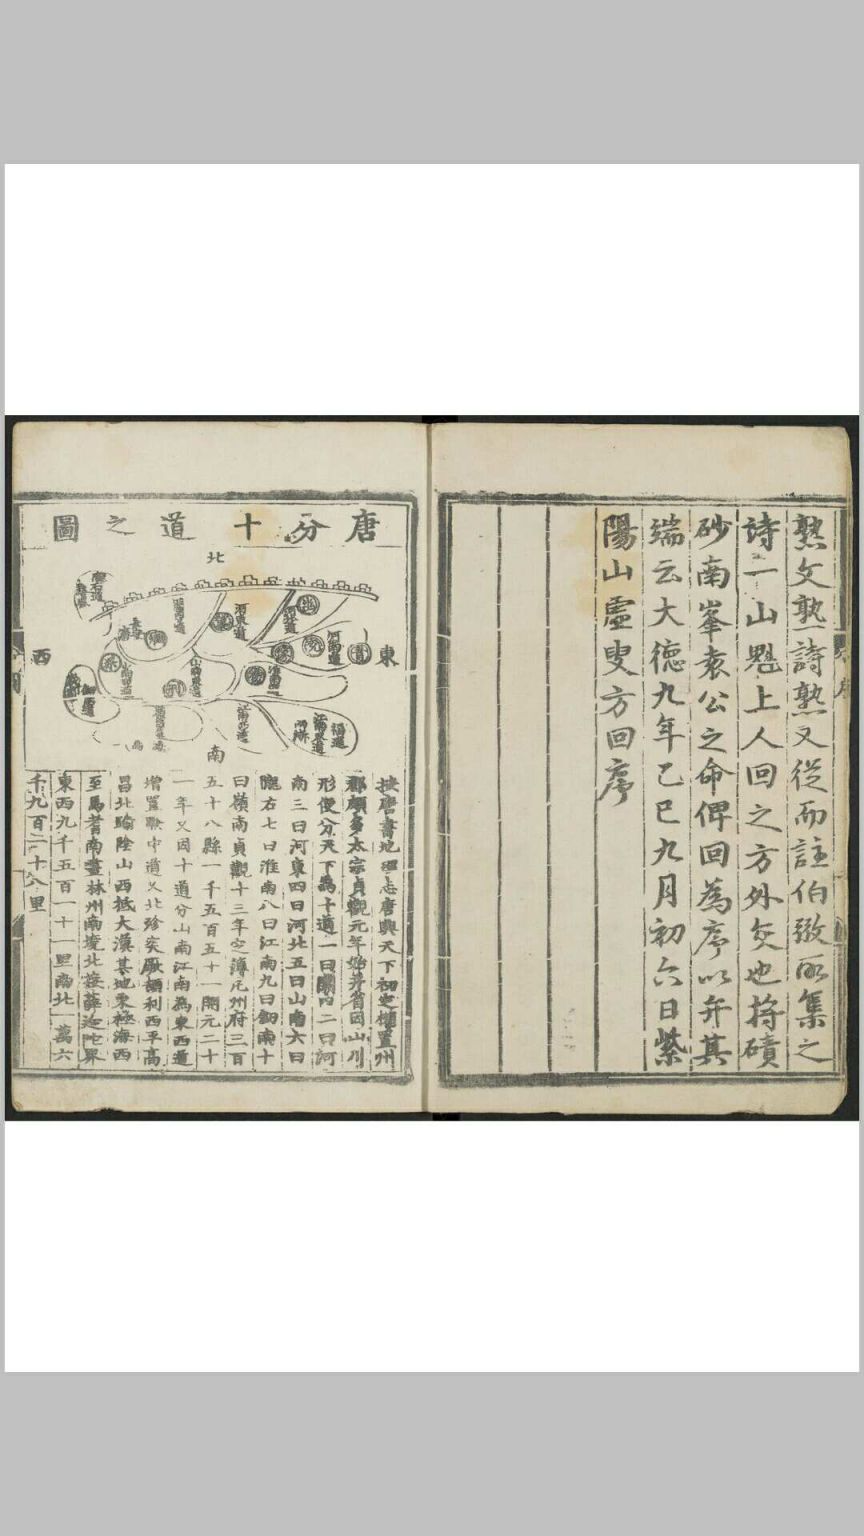 熟文熟詩熟又從而註伯弜所集之
詩一山魁上人回之方外交也将磧
砂南峯袁公之命俾回為序以弁其
端云大德九年乙巳九月初六日紫
陽山虛叟方回序
唐分十道之圖
北
東
西
南
河東道
河南道
按唐書地理志唐興天下初定權置州
郡頗多太宗貞觀元年始并省因山川
形便分天下為十道一曰關內二曰河
南三曰河東四曰河北五曰山南六曰
隴右七曰淮南八曰江南九曰劒南十
曰嶺南貞觀十三年定簿凡州府三百
五十八縣一千五百五十一開元二十
一年又因十道分山南江南為東西道
增置黔中道又北殄突厥頡利西平高
昌北踰陰山西抵大漠其地東極海西
至焉耆南盡林州南境北接薛延陀界
東西九千五百一十一里南北一萬六
千九百一十八里